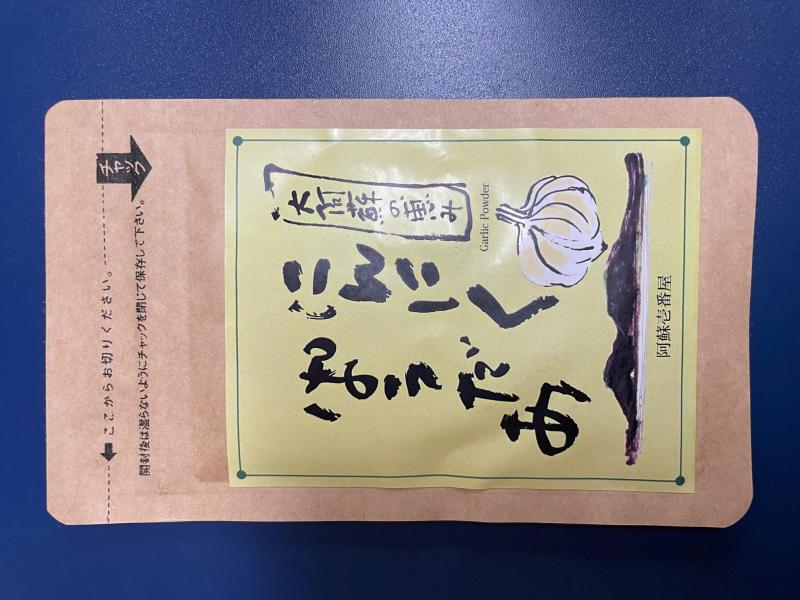 ここからお切りください。
チャック
開封後は湿らないようにチャックを閉じて保存して下さい。
大阿蘇の恵み
にんにく
ぱうだあ
Garlic Powder
阿蘇壱番屋